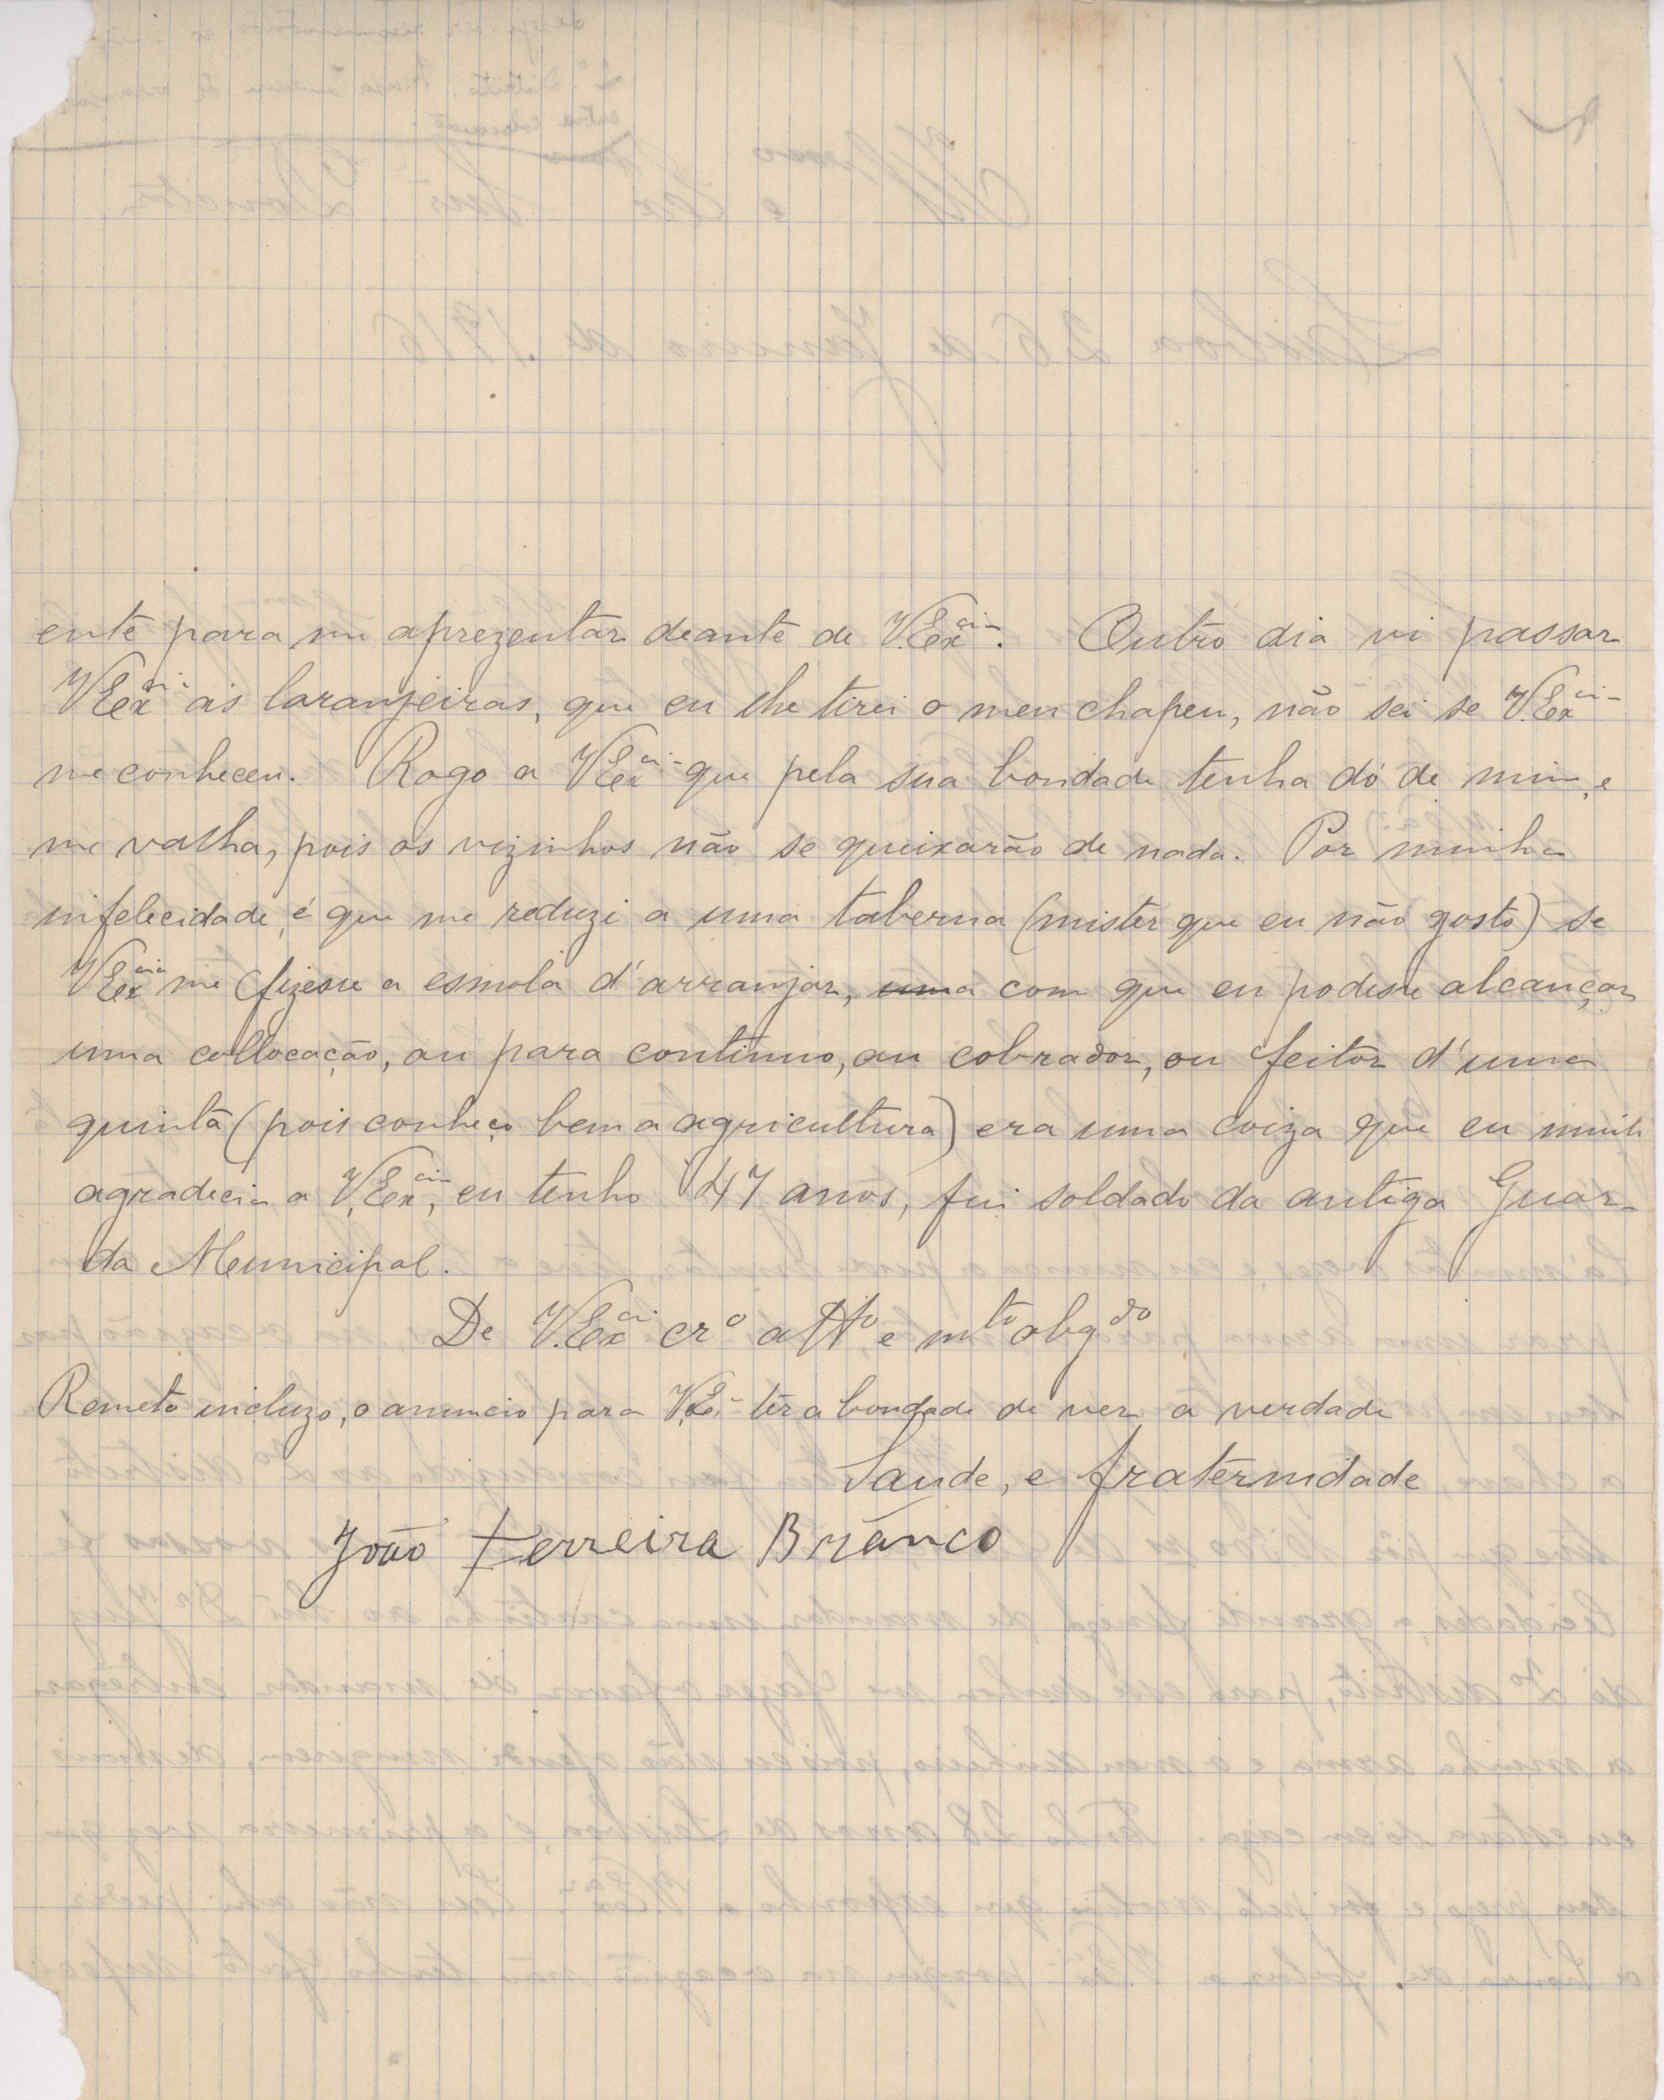 ente para me aprezentar deante de V.Exciª. Outro dia vi passar
V.Exciª ás laranjeiras, que eu lhe tirei o meu chapeu, não sei se V.Exciª
me conheceu. Rogo a V.Exciª que pela sua bondade tenha dó de mim, e
me valha, pois os vizinhos não se queixarão de nada. Por minha
infelecidade, é que me reduzi a uma taberna (mister que eu não gosto) se
V.Exciª me fizesse a esmola d'arranjar, uma com que eu podesse alcançar
uma collocação, ou para continuo, ou cobrador, ou feitor d'uma
quinta (pois conheço bem a agricultura) era uma coiza que eu muito
agradecia a V.Exciª, eu tenho 47 anos, fui soldado da antiga Guar-
da Municipal.
De V.Exciª crº attº e mtº obgdo
Remeto incluzo, o anuncio para V.Eª têr a bondade de ver a verdade
Saude, e fraternidade
João Ferreira Branco